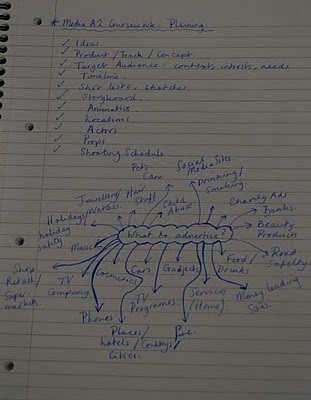 * Media A2 Coursework Planning
✓ Ideas
✓ Product / Track / Concept
✓ Target Audience: contexts, intrests, needs
✓ Timeline.
✓ Shot lists, sketches
✓ Storyboard
✓ Animatics
✓ Locations
✓ Actors
✓ Props
✓ Shooting Schedule
Pets
Care
Social
Media Sites.
Drinking /
Smoking
Jewellery/
Watches.
Hair
Stuff
Child
Abuse
Charity Ads
Banks.
Holidays/
holiday
safety
What to advertise
Beauty
Products
Music
Road
Safety.
Shop
Retail/
Super-
markets.
TV
Company
Cosmetics
Cars
Gadgets
Food/
Drinks
Phones
TV
Programes.
Services
(Home)
Money leading
Sites.
Places/
hotels/
Cities.